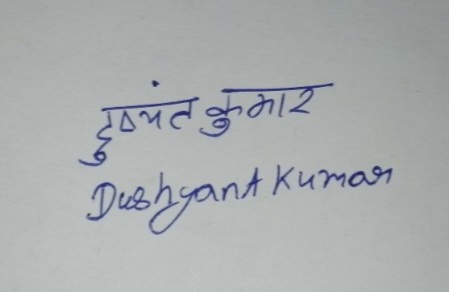 दुष्यंत कुमार
Dushyant Kumar